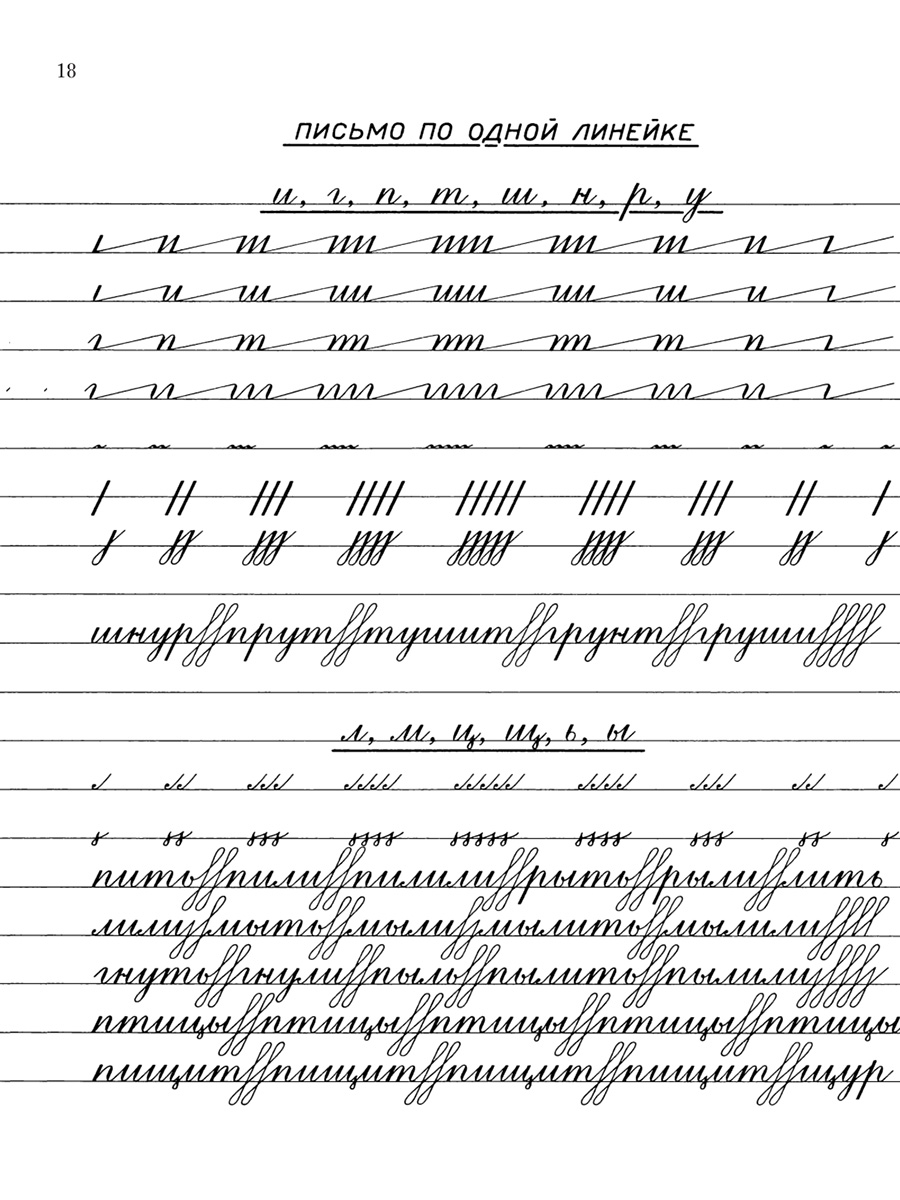 18
ПИСЬМО ПО ОДНОЙ ЛИНЕЙКЕ
и, г, п, т, ш, н, р, у
шнур прут тушит грунт груши
л, м, ц, щ, ь, ы
пить пили пилили рыть рыли лить
лили мыть мыли мылить мылили
гнуть гнули пыль пылить пылили
птицы птицы птицы птицы птицы
пищит пищит пищит пищит щур